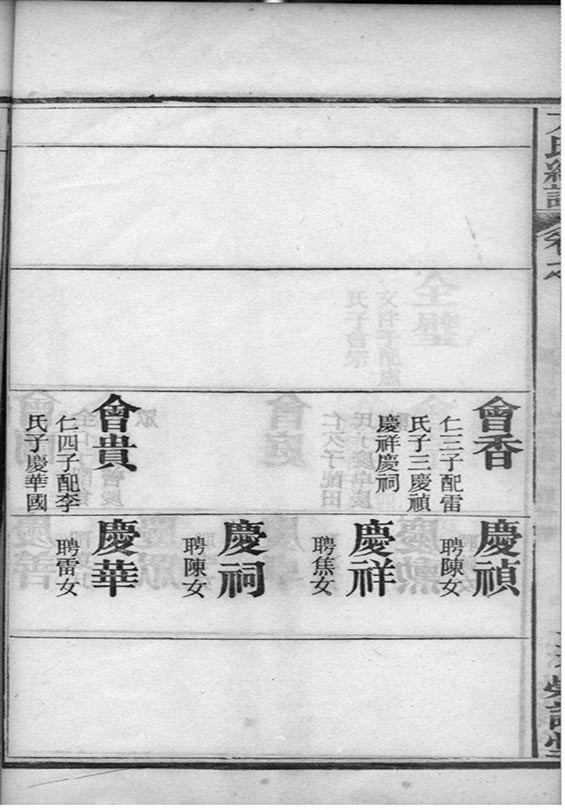 會香
仁三子配雷
氏子三慶禎
慶祥慶祠
會貴
仁四子配李
氏子慶華國
慶禎
聘陳女
慶祥
聘焦女
慶祠
聘陳女
慶華
聘雷女